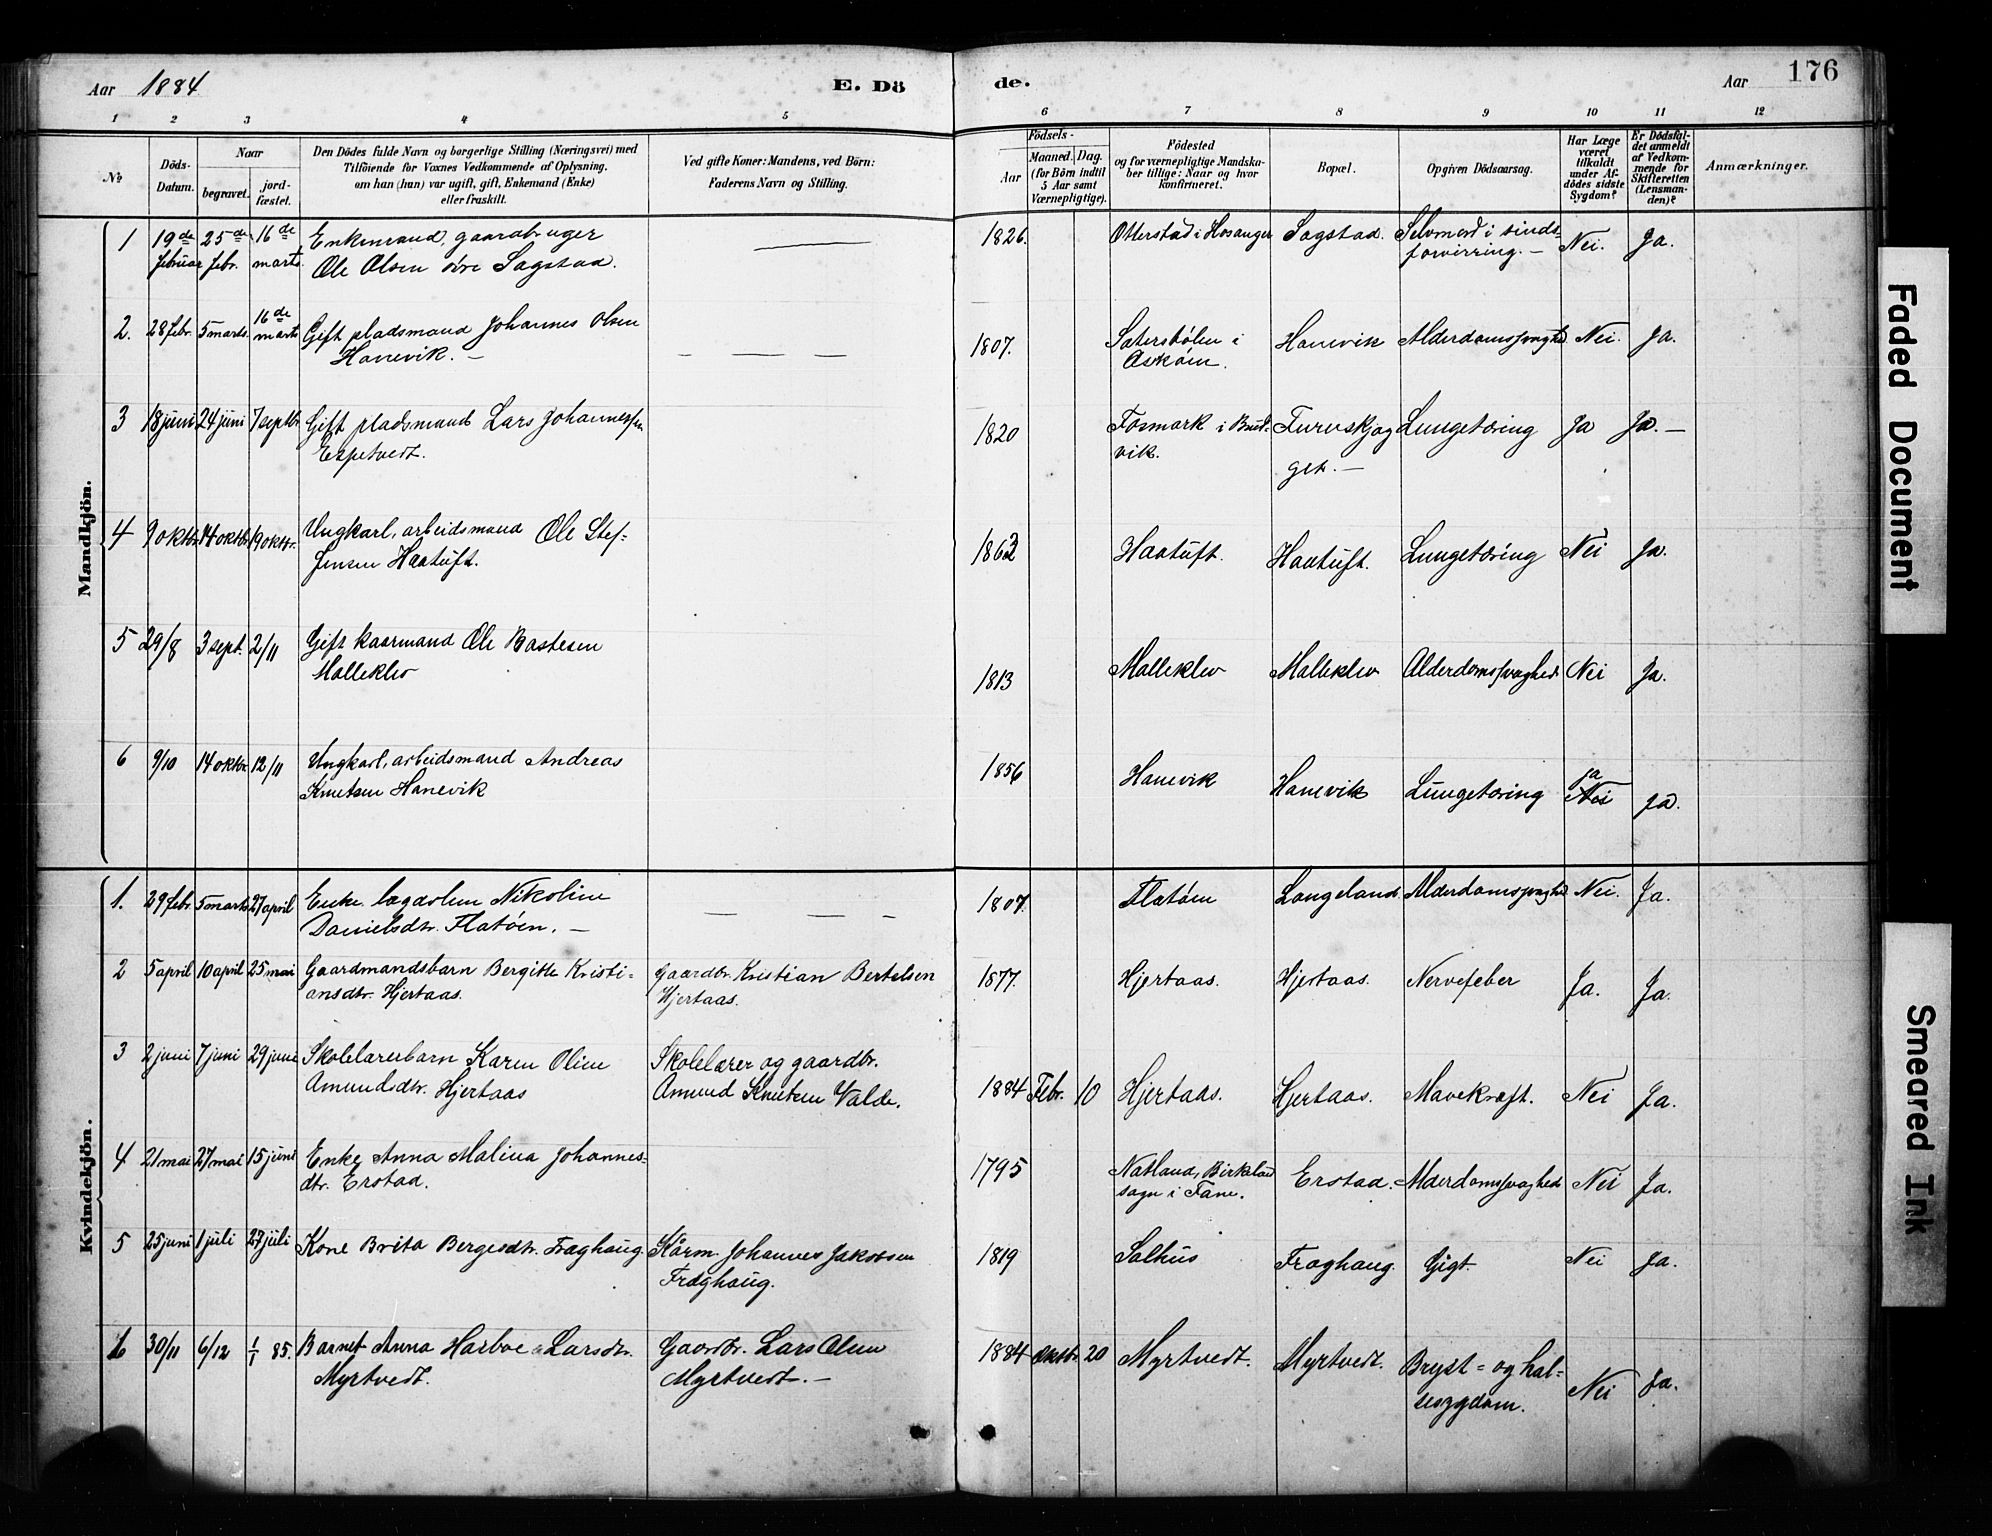 Aar 1884
E. Dö
de.
Aar
176
1 2 3 4 5 6 7 8 9 10 11 12
No
Döds-
Datum.
Naar
begravet.
jord-
fæstet.
Den Dödes fulde Navn og borgerlige Stilling (Næringsvei) med
Tilföiende for Voxnes Vedkommende af Oplysning,
om han (hun) var ugift, gift, Enkemand (Enke)
eller fraskilt.
Ved gifte Koner: Mandens, ved Börn:
Faderens Navn og Stilling.
Födsels-
Aar
Maaned. Dag.
(for Börn indtil
5 Aar samt
Værnepligtige).
Födested
og for værnepligtige Mandska-
ber tillige: Naar og hvor
konfirmeret.
Bopæl.
Opgiven Dödsaarsag.
Har Læge
været
tilkaldt
under Af-
dödes sidste
Sygdom?
Er Dödsfal-
det anmeldt
af Vedkom-
mende for
Skifteretten
(Lensman-
den)?
Anmærkninger.
Mandkjön.
1 19de 25de 16de Enkemand, gaardbruger 1826. Otterstad i Hosanger Sagstad. Selvmord i sinds- Nei. Ja.
februar febr. marts Ole Olsen øvre Sagstad. forvirring. –
2. 28 febr. 5 marts. 16de marts Gift pladsmand Johannes Olsen 1807. Sætersbølen i Hanevik Alderdomssvaghed Nei. Ja.
Hanevik. – Askøen.
3 18 juni 24 juni 7 septbr Gift pladsmand Lars Johannessen 1820 Fosmark i Brud- Furuskjæg Lungetæring Ja Ja. –
Espetvedt. vik. get. –
4 9 oktbr. 14 oktbr 19 oktr. Ungkarl, arbeidsmand Ole Stef- 1862 Haatuft. Haatuft. Lungetæring Nei Ja.
fensen Haatuft.
5 29/8 3 sept. 2/11 Gift kaarmand Ole Bastesen 1813 Malleklev Malleklev Alderdomssvaghed Nei Ja.
Malleklev
6 9/10 14 oktbr 12/11 Ungkarl, arbeidsmand Andreas 1856 Hanevik Hanevik Lungetæring ja Nei ja.
Knutsen Hanevik
Kvindekjön.
1. 29 febr. 5 marts 27 april Enke lægdslem Nikoline 1807. Flatøen Langeland Alderdomssvaghed Nei. Ja.
Danielsdtr. Flatøen. –
2 5 april 10 april 25 mai Gaardmandsbarn Bergitte Kristi- gaardbr. Kristian Bertelsen 1877. Hjertaas. Hjertaas. Nervefeber Ja. Ja.
ansdtr. Hjertaas. Hjertaas.
3 2 juni 7 juni 29 juni Skolelærerbarn Karen Oline Skolelærer og gaardbr. 1884 Febr. 10 Hjertaas. Hjertaas. Mavekræft. Nei Ja.
Amundsdtr. Hjertaas Amund Knutsen Valde.
4 21 mai 27 mai 15 juni Enke Anna Malina Johannes- 1795 Natland, Birkeland Erstad. Alderdomssvaghed Nei Ja.
dtr. Erstad. sogn i Fane.
5 25 juni 1 juli 27 juli Kone Brita Bergesdtr. Fræghaug. Kårm. Johannes Jakobsen 1819 Salhus Fræghaug. Gigt. Nei Ja.
Fræghaug.
6 30/11 6/12 1/1 85. Barnet Anna Harboe Larsdtr. Gaardbr. Lars Olsen 1884 Oktbr. 20 Myrtvedt. Myrtvedt. Bryst- og hal- Nei Ja.
Myrtvedt. Myrtvedt. – sesygdom.
Faded Document
Smeared Ink